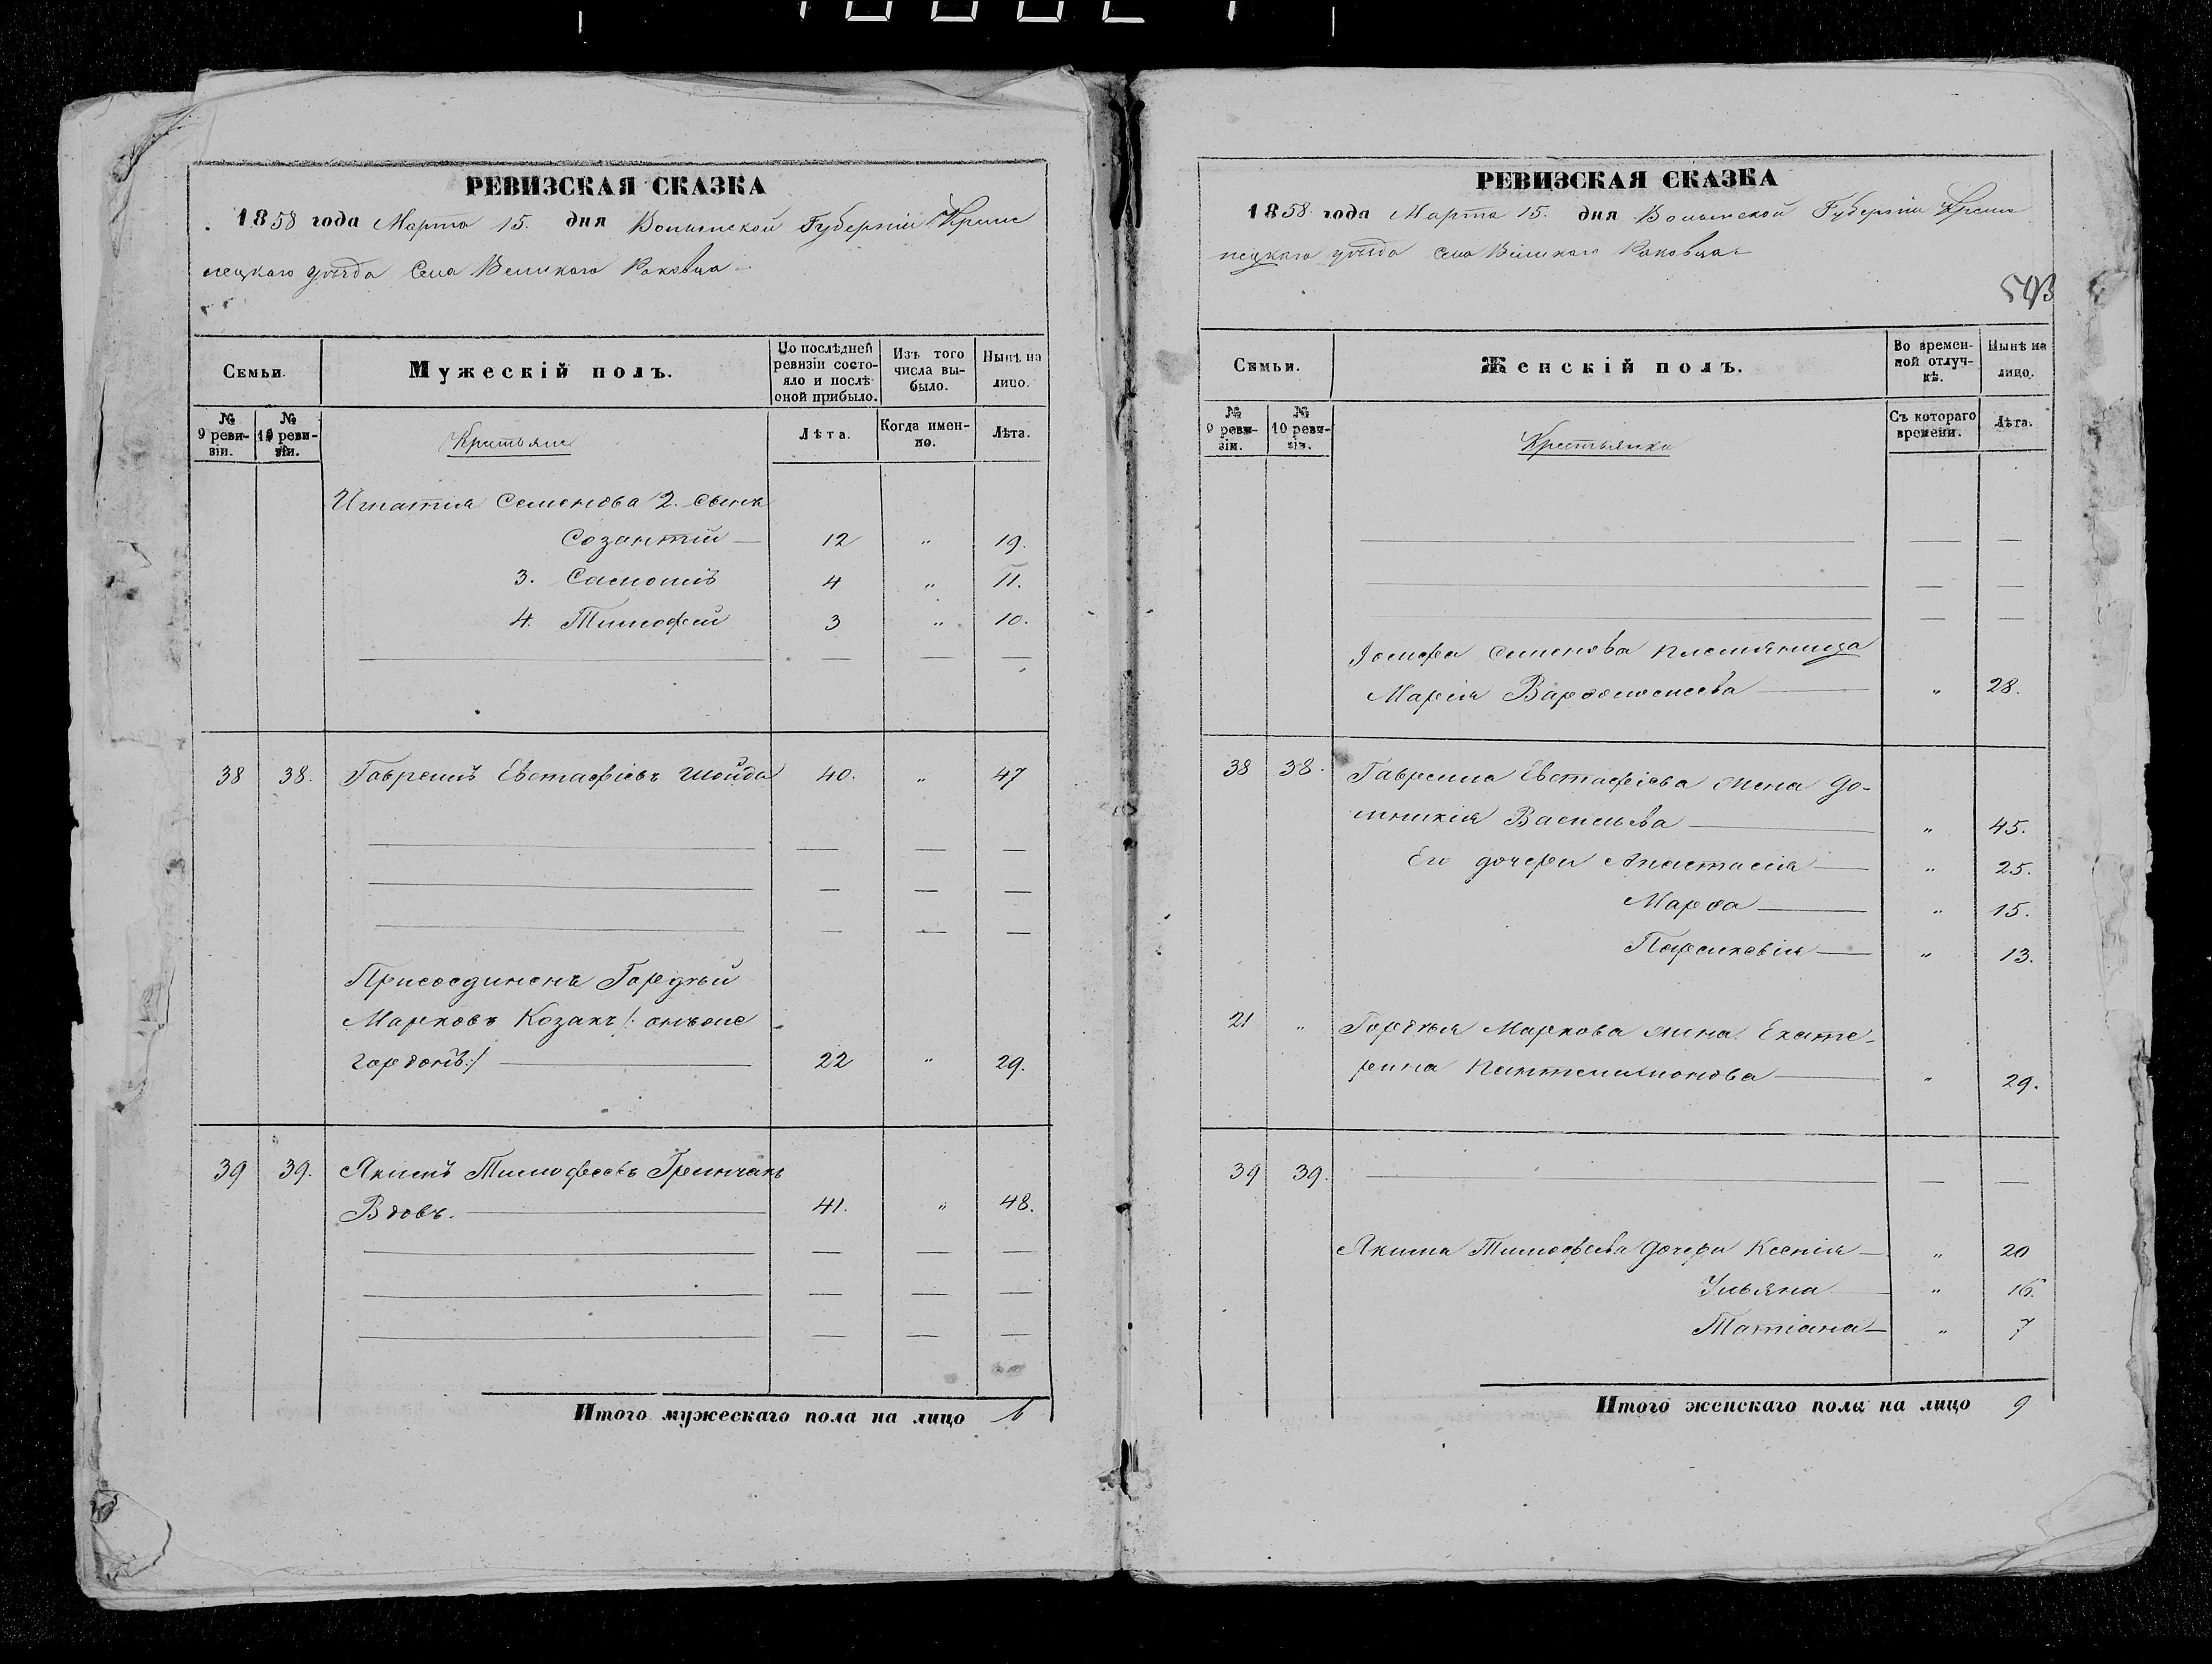 РЕВИЗСКАЯ СКАЗКА
1858 года Марта 15. дня Волынской Губерніи Креме
нецкаго уѣзда Села Великого Раковца
Семьи.
Мужескій полъ.
По послѣдней ревизіи состояло и послѣ оной прибыло.
Изъ того числа выбыло.
Нынѣ на лицо.
№ 9 ревизіи.
№ 10 ревизіи.
Крестьяне
Лѣта.
Когда именно.
Лѣта.
Игнатія Семенова 2. сынъ
Созантій 12 " 19.
3. Самоилъ 4 " 11.
4. Тимофей 3 " 10.
38 38. Гавріилъ Евстафіевъ Шойда 40. " 47
Присоединенъ Гордѣй
Марковъ Козакъ /: онъ же
Гордонъ :/ 22 " 29.
39 39. Якимъ Тимофеевъ Гринчакъ
Вдовъ. 41. " 48.
Итого мужескаго пола на лицо 6
РЕВИЗСКАЯ СКАЗКА
1858 года Марта 15. дня Волынской Губерніи Креме
нецкаго уѣзда Села Великаго Раковца
593
Семьи.
Женскій полъ.
Во временной отлучкѣ.
Нынѣ на лицо.
№ 9 ревизіи.
№ 10 ревизіи.
Крестьянки
Съ котораго времени.
Лѣта.
Іосифа Семенова племянница
Марія Варфоломеева " 28.
38 38. Гавріила Евстафіева жена До-
микія Васильева " 45.
Его дочери Анастасія " 25.
Марфа " 15.
Параскевія " 13.
21 " Гордѣя Маркова жена Екате-
рина Пантелимонова " 29.
39 39.
Якима Тимофеева дочери Ксенія " 20
Ульяна " 16.
Татіана " 7
Итого женскаго пола на лицо 9